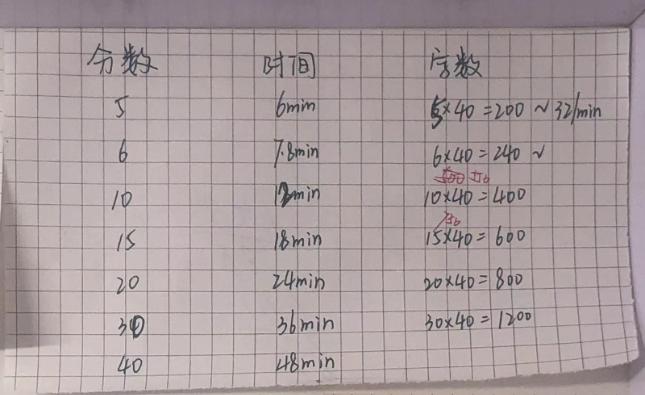 分数 时间 字数
5 6min 5×40=200 ~ 32/min
6 7.8min 6×40=240 ~
10 12min 10×40=400
15 18min 15×40=600
20 24min 20×40=800
30 36min 30×40=1200
40 48min